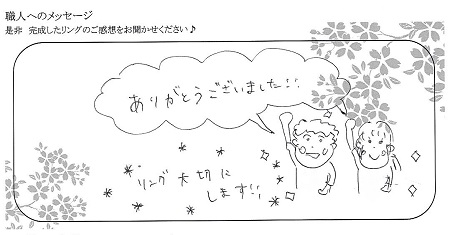 職人へのメッセージ
是非 完成したリングのご感想をお聞かせください♪
ありがとうございました!!
リング大切に
します!!